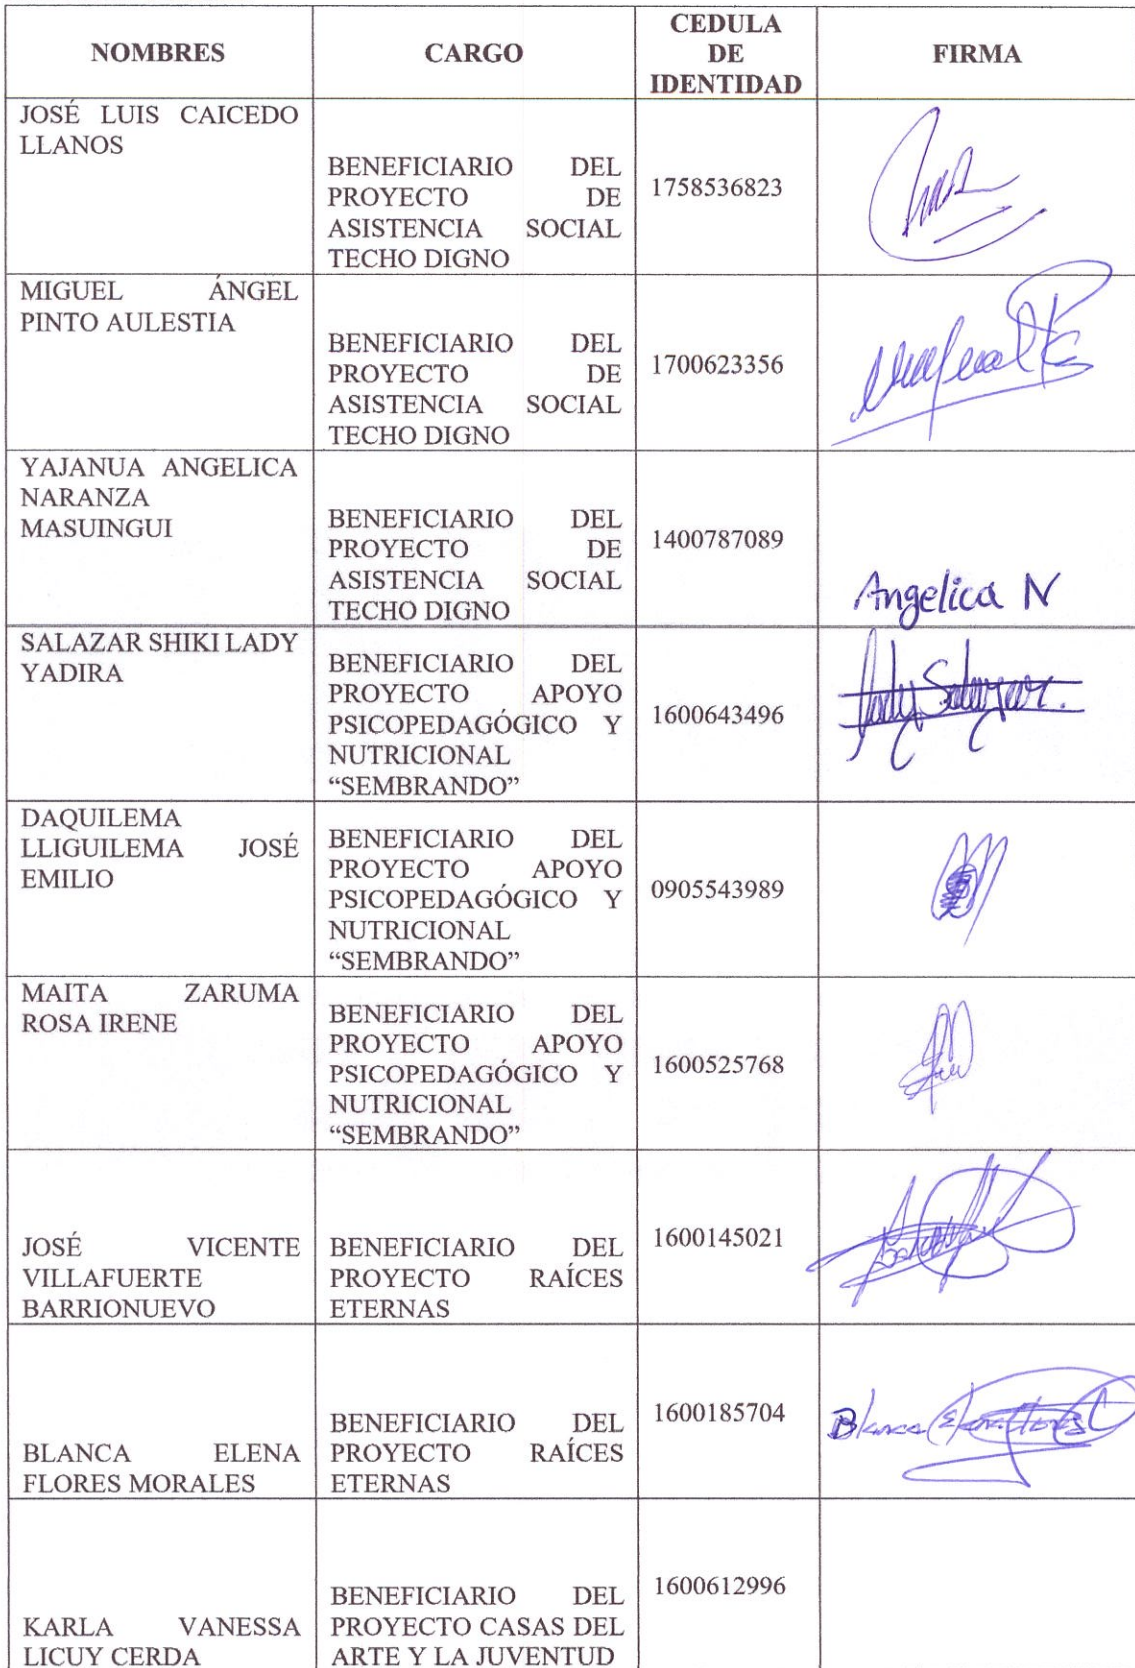 NOMBRES CARGO CEDULA DE IDENTIDAD FIRMA
JOSÉ LUIS CAICEDO
LLANOS
BENEFICIARIO DEL
PROYECTO DE
ASISTENCIA SOCIAL
TECHO DIGNO
1758536823
MIGUEL ÁNGEL
PINTO AULESTIA
BENEFICIARIO DEL
PROYECTO DE
ASISTENCIA SOCIAL
TECHO DIGNO
1700623356
YAJANUA ANGELICA
NARANZA
MASUINGUI
BENEFICIARIO DEL
PROYECTO DE
ASISTENCIA SOCIAL
TECHO DIGNO
1400787089
Angelica N
SALAZAR SHIKI LADY
YADIRA
BENEFICIARIO DEL
PROYECTO APOYO
PSICOPEDAGÓGICO Y
NUTRICIONAL
“SEMBRANDO”
1600643496
Lady Salazar.
DAQUILEMA
LLIGUILEMA JOSÉ
EMILIO
BENEFICIARIO DEL
PROYECTO APOYO
PSICOPEDAGÓGICO Y
NUTRICIONAL
“SEMBRANDO”
0905543989
MAITA ZARUMA
ROSA IRENE
BENEFICIARIO DEL
PROYECTO APOYO
PSICOPEDAGÓGICO Y
NUTRICIONAL
“SEMBRANDO”
1600525768
JOSÉ VICENTE
VILLAFUERTE
BARRIONUEVO
BENEFICIARIO DEL
PROYECTO RAÍCES
ETERNAS
1600145021
BLANCA ELENA
FLORES MORALES
BENEFICIARIO DEL
PROYECTO RAÍCES
ETERNAS
1600185704
Blanca Elena Flores
KARLA VANESSA
LICUY CERDA
BENEFICIARIO DEL
PROYECTO CASAS DEL
ARTE Y LA JUVENTUD
1600612996